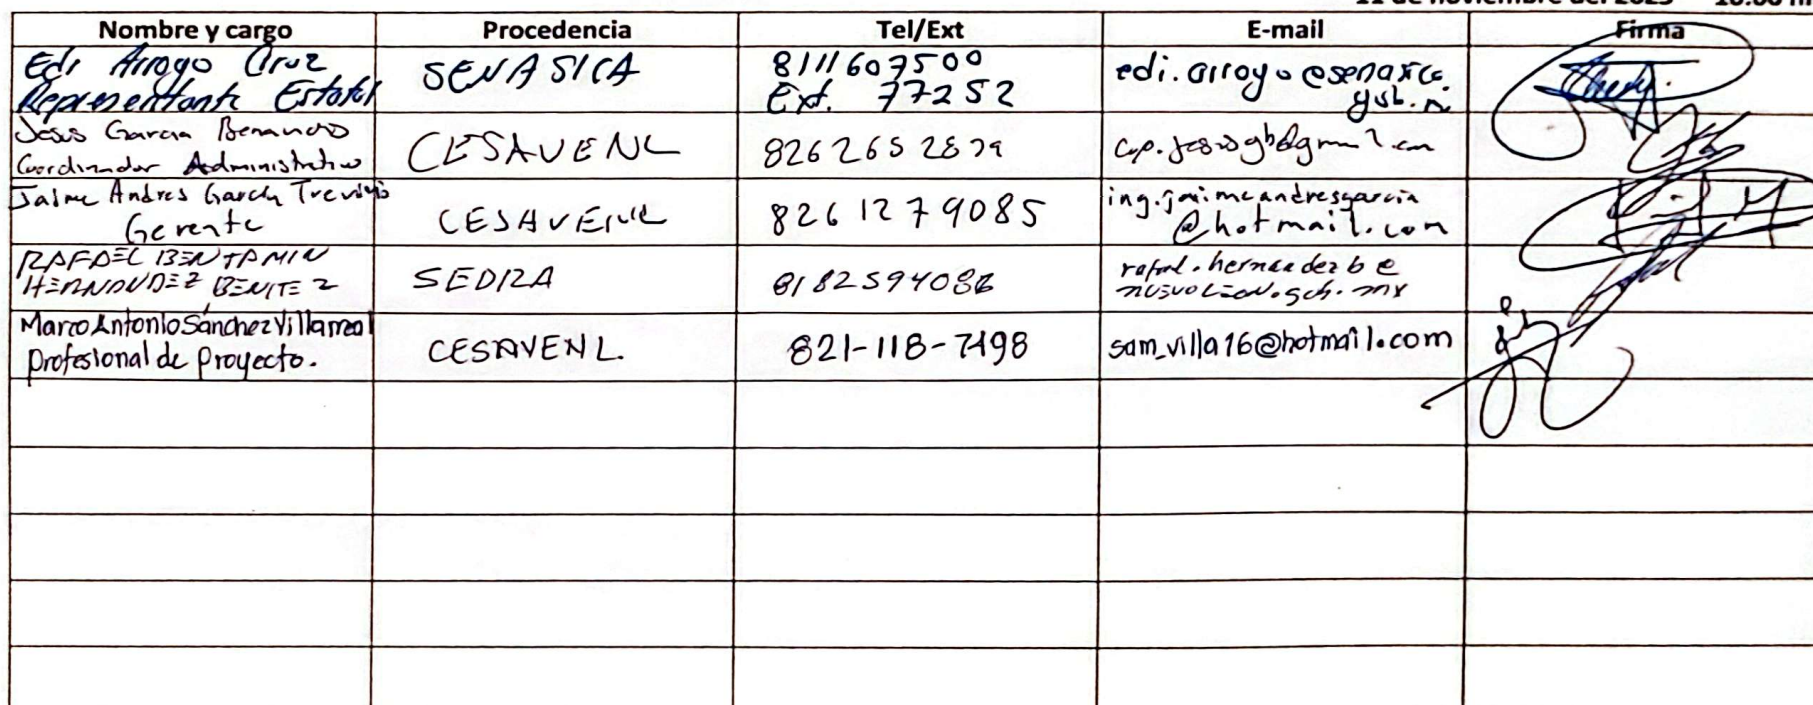 11 de noviembre del 2025 10:00 h
Nombre y cargo Procedencia Tel/Ext E-mail Firma
Edi Arroyo Cruz
Representante Estatal
SENASICA
8111607500
Ext. 77252
edi.arroyo@senasica.
gob.m
Jesus Garcia
Coordinador Administrativo
CESAVENL
826265
Jaime Andres Garcia Treviño
Gerente
CESAVENL
8261279085
ing.jaimeandresgarcia
@hotmail.com
RAFAEL BENJAMIN
HERNANDEZ BENITEZ
SEDRA
rafael.hernandezb@
nuevoleon.gob.mx
Marco Antonio Sánchez Villarreal
profesional de proyecto.
CESAVENL.
821-118-7498
sam_villa16@hotmail.com